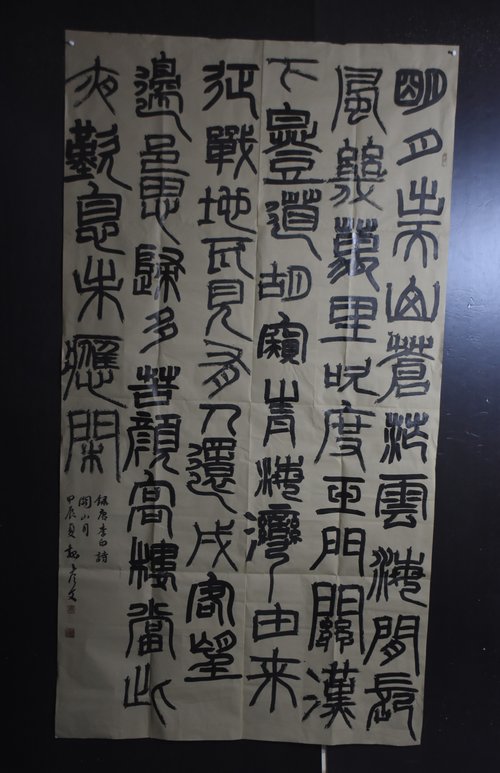 明月出天山蒼茫雲海間長
風幾萬里吹度玉門關漢
下白登道胡窺青海灣由来
征戰地不見有人還戍客望
邊邑思歸多苦顏高樓當此
夜歎息未應閑
錄唐李白詩
關山月
甲辰夏